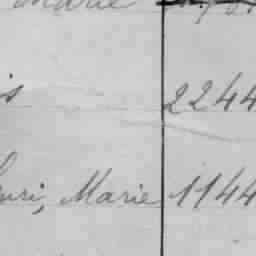 Marie
is 2244
Henri, Marie 1144